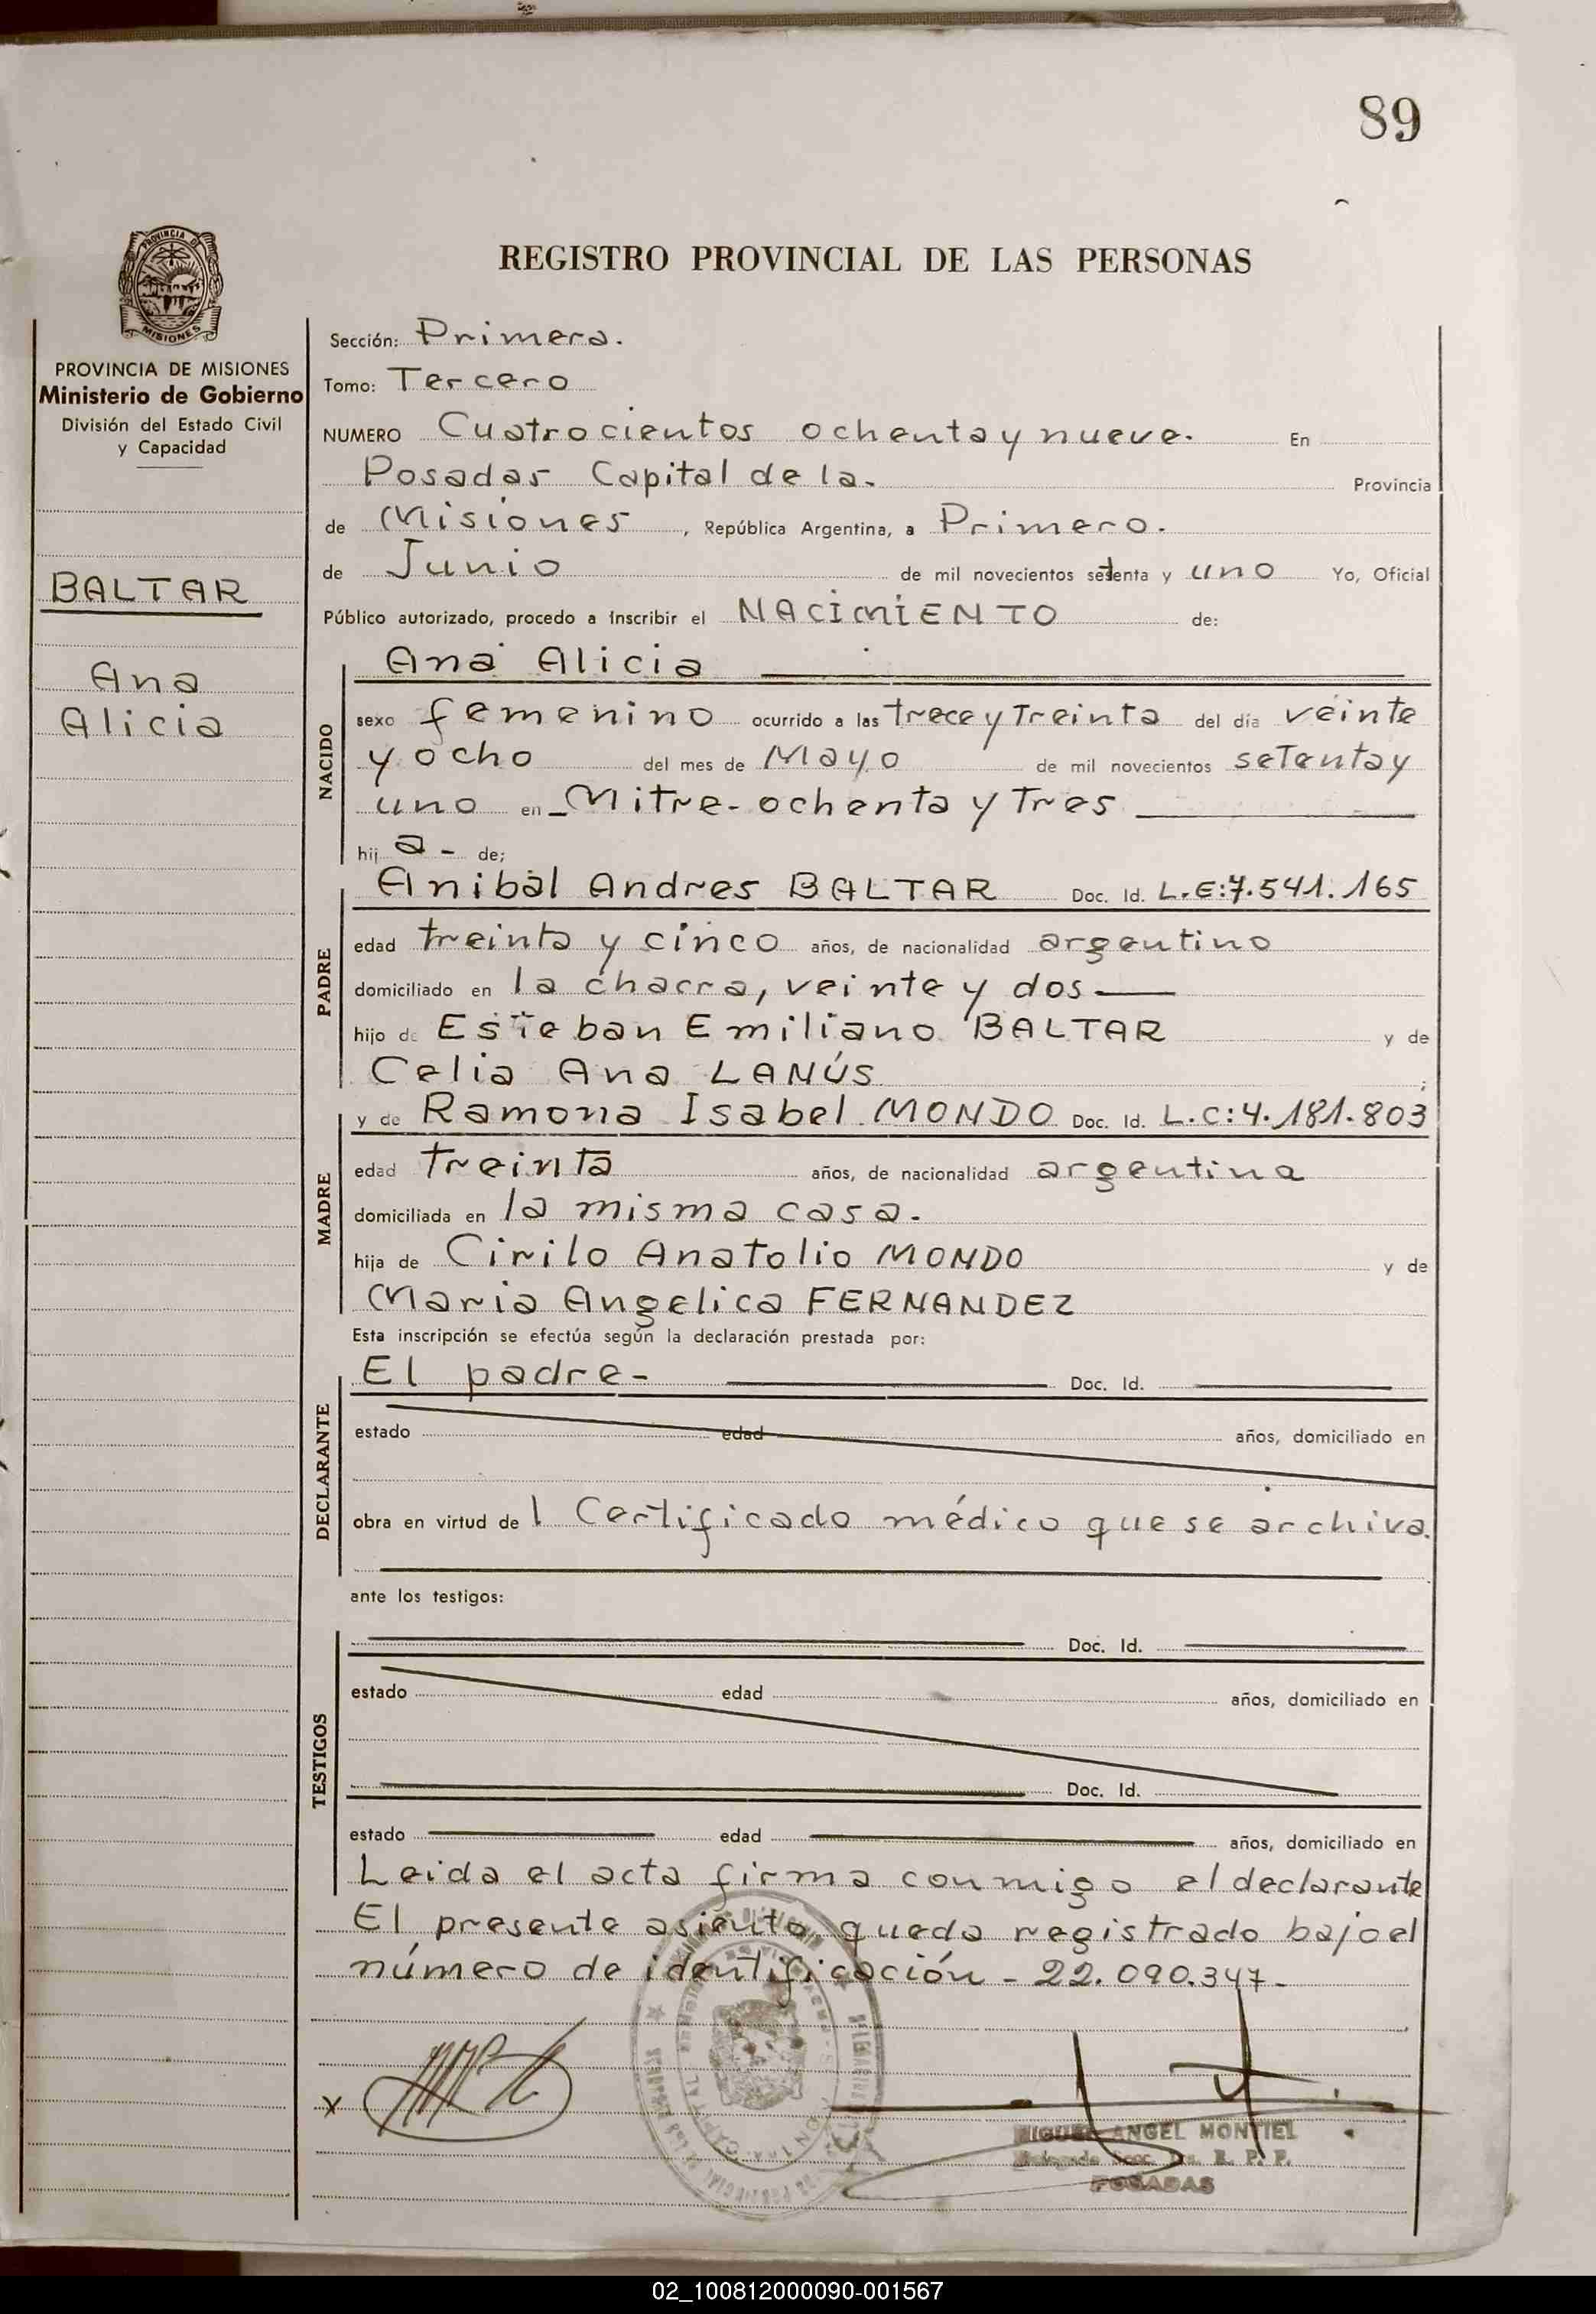 89
PROVINCIA DE
MISIONES
REGISTRO PROVINCIAL DE LAS PERSONAS
PROVINCIA DE MISIONES
Ministerio de Gobierno
División del Estado Civil
y Capacidad
BALTAR
Ana
Alicia
Sección: Primera.
Tomo: Tercero
NUMERO Cuatrocientos ochenta y nueve. En
Posadas Capital de la. Provincia
de Misiones, República Argentina, a Primero.
de Junio de mil novecientos setenta y uno Yo, Oficial
Público autorizado, procedo a inscribir el NACIMIENTO de:
Ana Alicia
NACIDO
sexo femenino ocurrido a las trece y Treinta del día veinte
y ocho del mes de Mayo de mil novecientos setenta y
uno en Mitre - ochenta y Tres
hij a - de;
PADRE
Anibal Andres BALTAR Doc. Id. L.E:7.541.165
edad treinta y cinco años, de nacionalidad argentino
domiciliado en la chacra, veinte y dos
hijo de Esteban Emiliano BALTAR y de
Celia Ana LANÚS ;
MADRE
y de Ramona Isabel MONDO Doc. Id. L.C:4.181.803
edad treinta años, de nacionalidad argentina
domiciliada en la misma casa.
hija de Cirilo Anatolio MONDO y de
Maria Angelica FERNANDEZ
Esta inscripción se efectúa según la declaración prestada por:
DECLARANTE
El padre - Doc. Id.
estado edad años, domiciliado en
obra en virtud de l Certificado médico que se archiva.
ante los testigos:
TESTIGOS
Doc. Id.
estado edad años, domiciliado en
Doc. Id.
estado edad años, domiciliado en
Leida el acta firma conmigo el declarante
El presente asiento queda registrado bajo el
número de identificación - 22.090.347-
x
MIGUEL ANGEL MONTIEL
R. P. P.
POSADAS
02_100812000090-001567